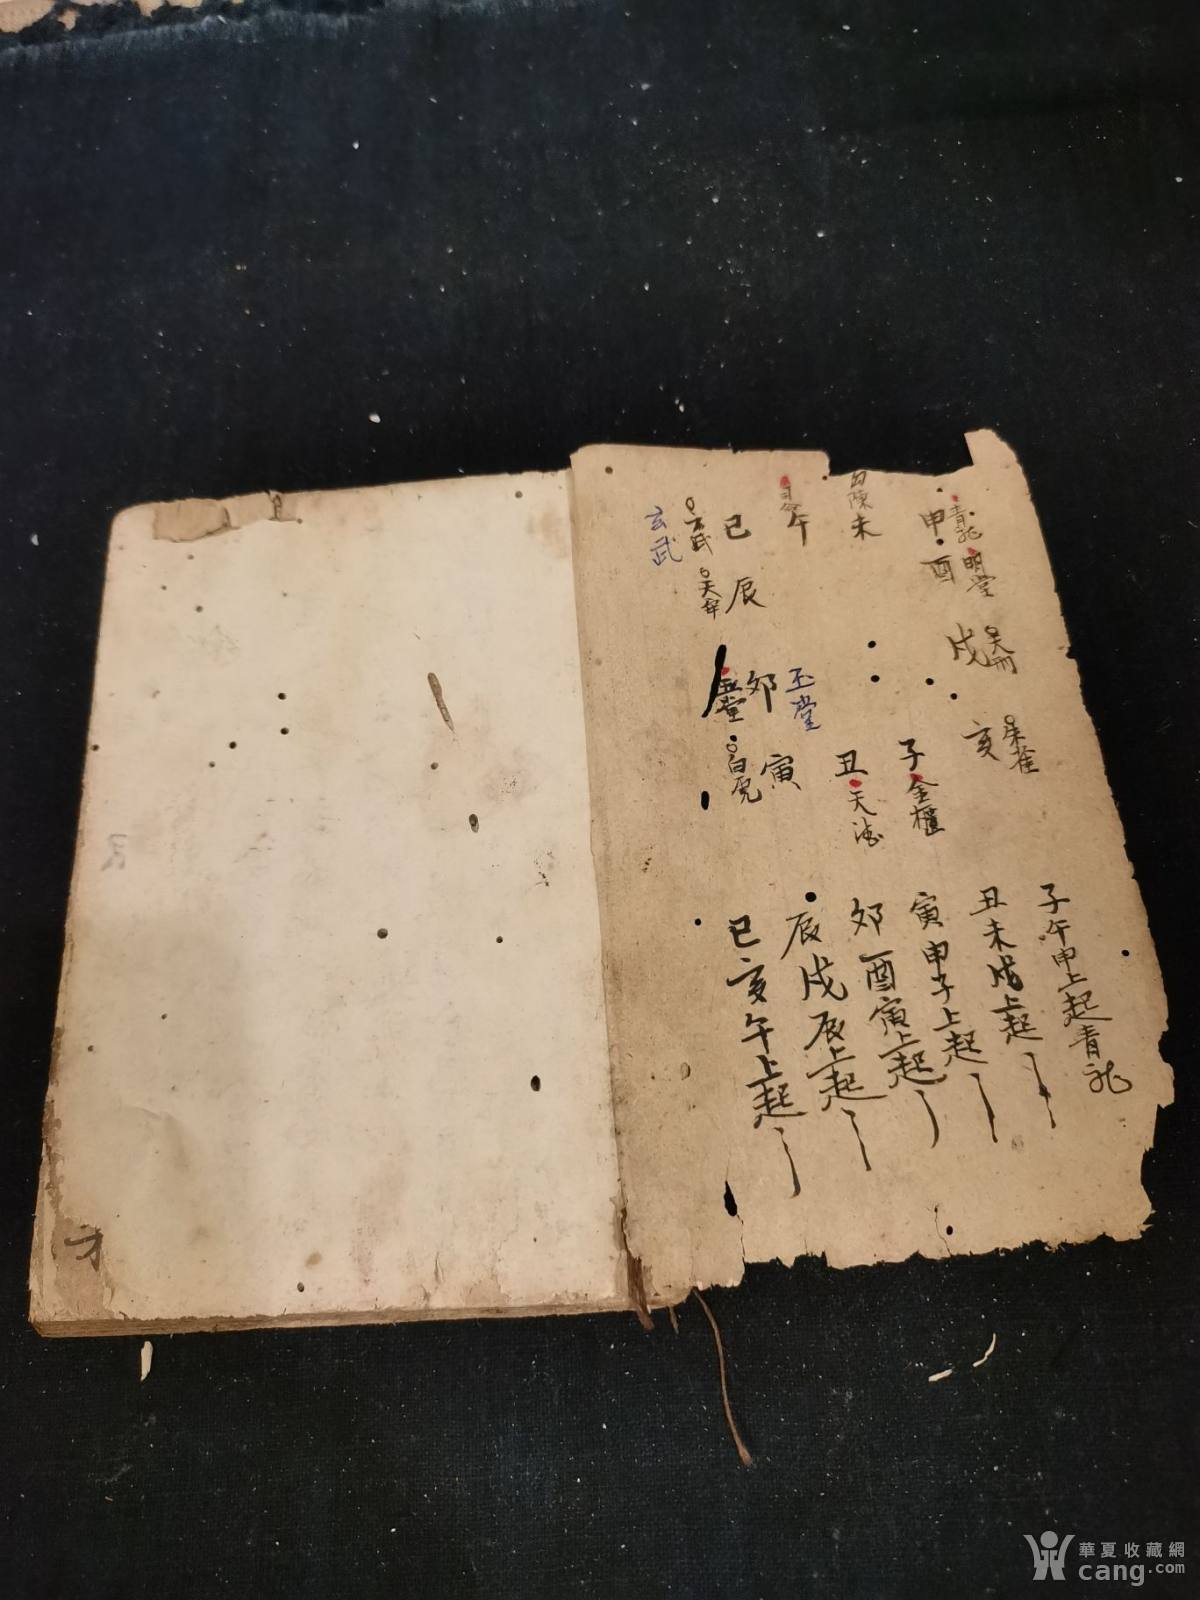 青龙
申
明堂
酉
天刑
戌
朱雀
亥
勾陳
未
司命
午
子
金櫃
丑
天德
巳
玄武
玄武
辰
天牢
卯
玉堂
玉堂
寅
白虎
子午申上起青龙
丑未戌上起
寅申子上起
卯酉寅上起
辰戌辰上起
巳亥午上起
才
華夏收藏網
cang.com